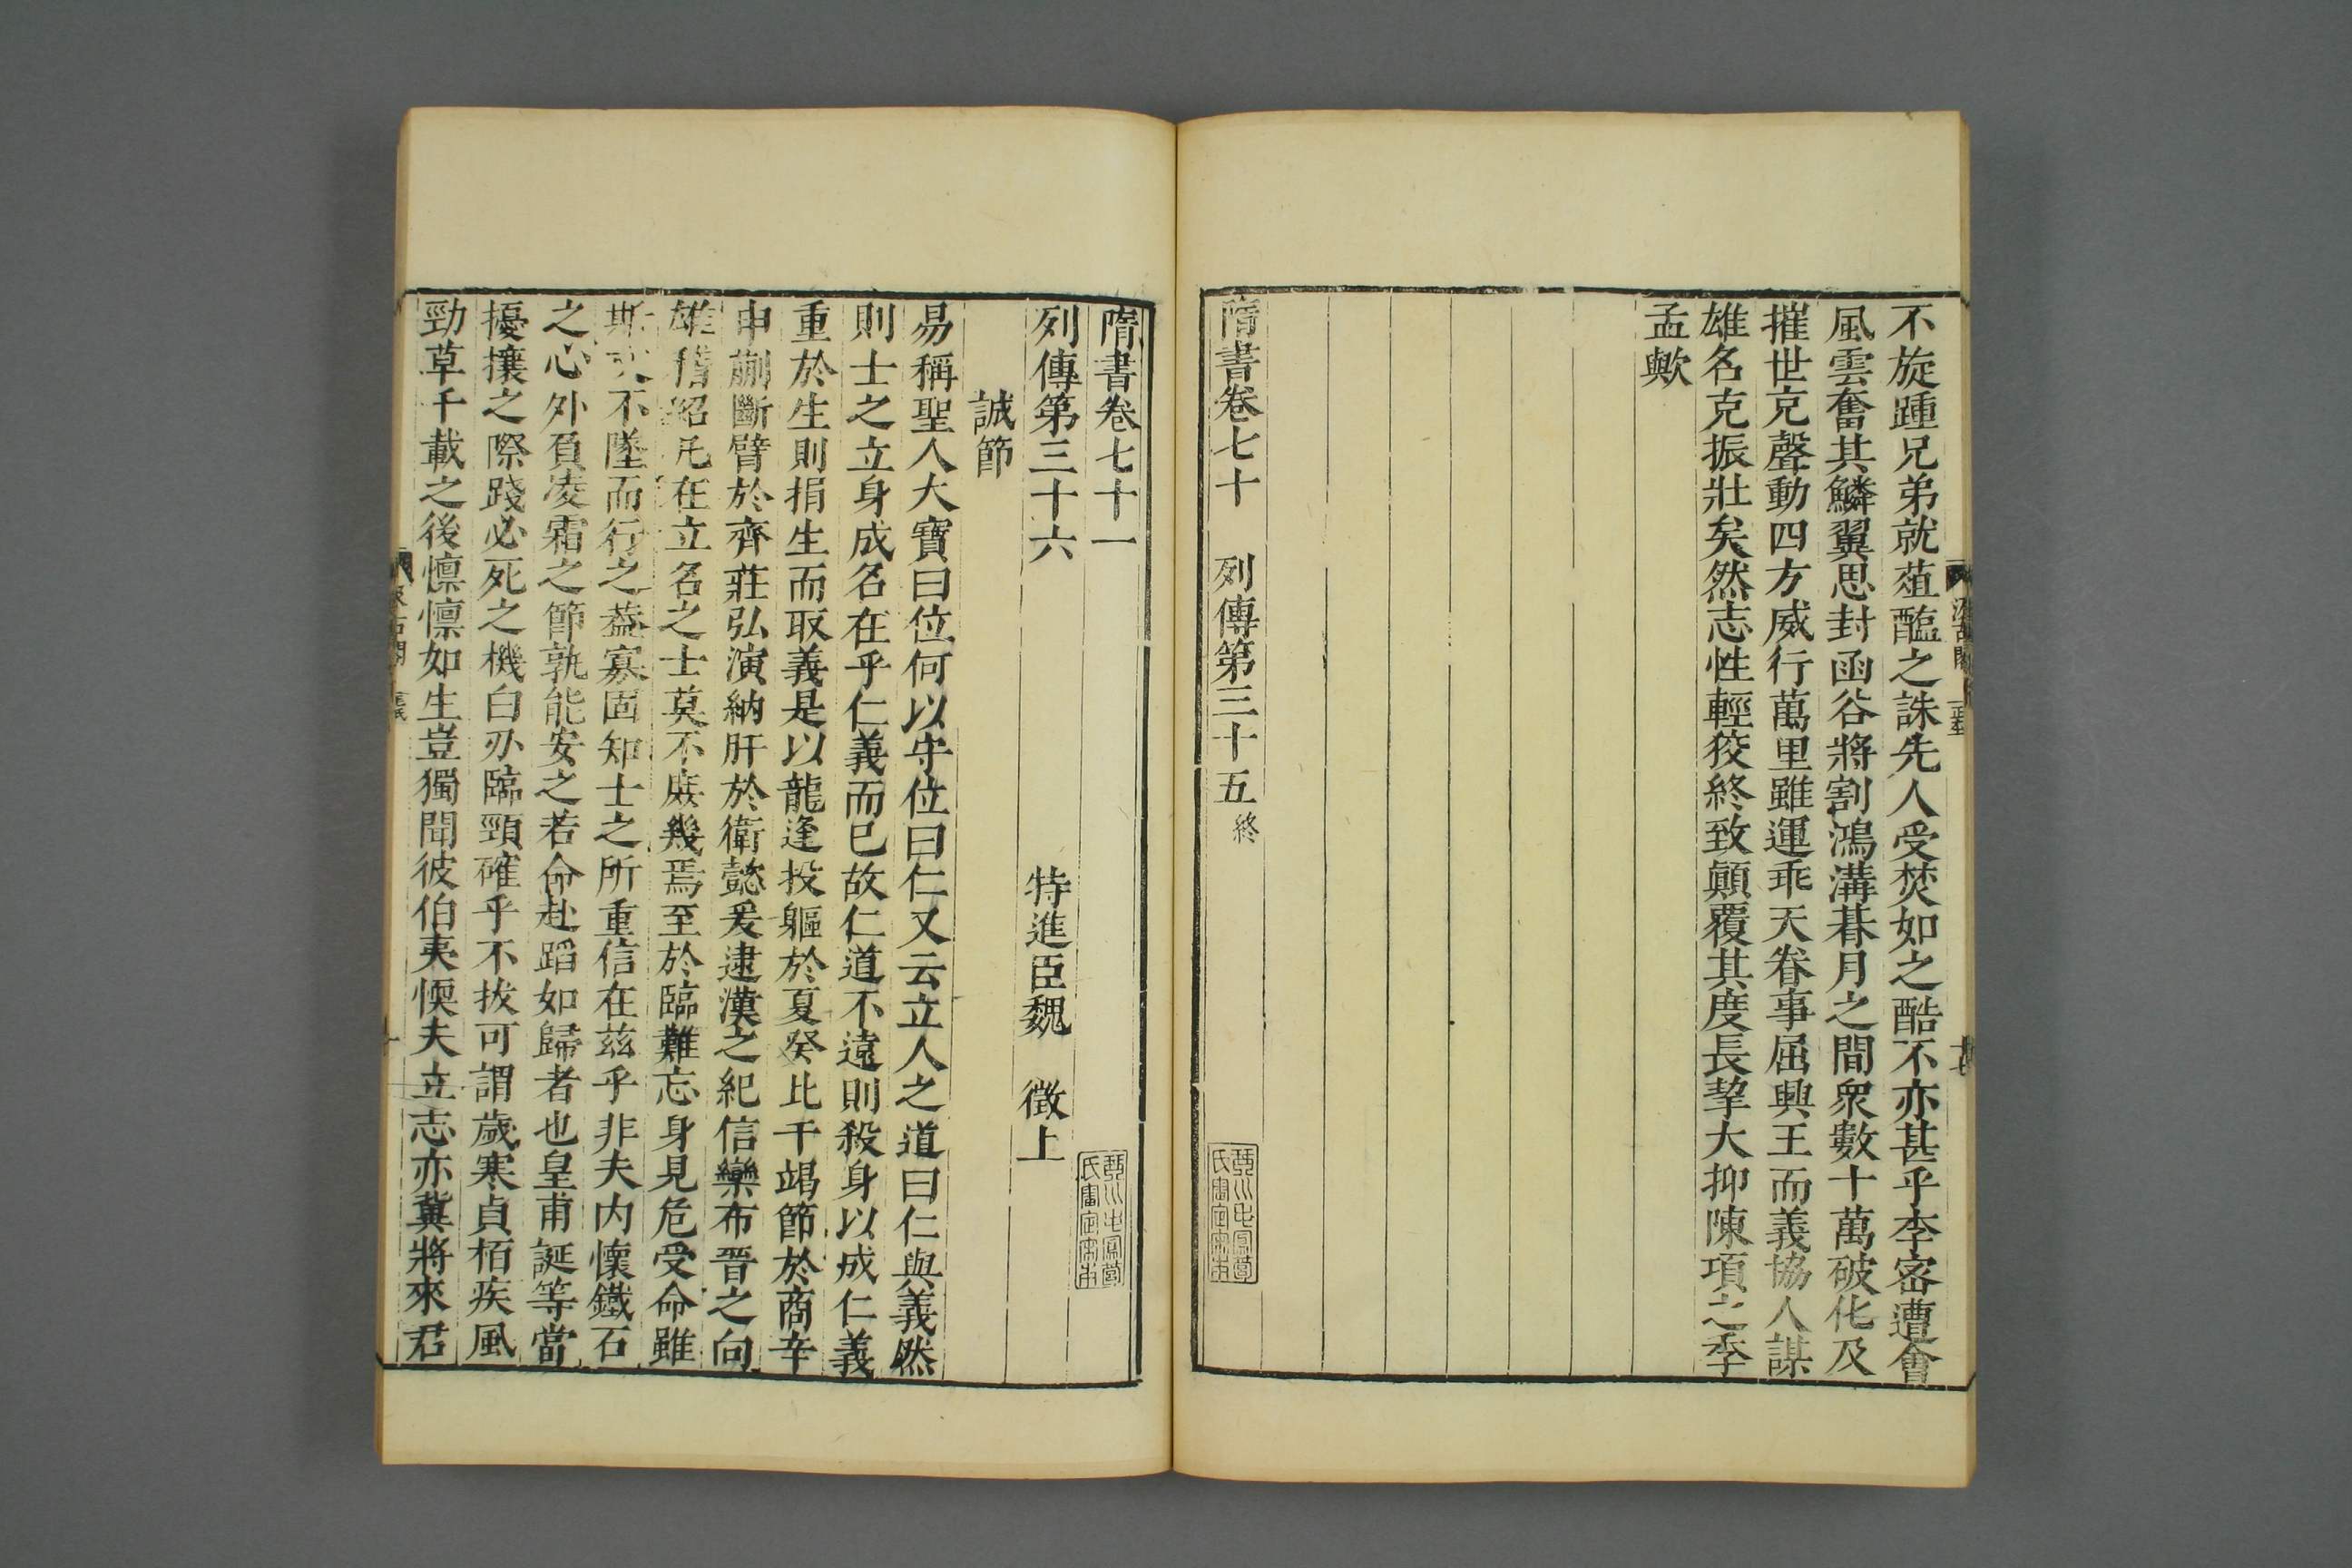 不旋踵兄弟就葅醢之誅先人受焚如之酷不亦甚乎李密遭會
風雲奮其鱗翼思封函谷將割鴻溝朞月之間衆數十萬破化及
摧世充聲動四方威行萬里雖運乖天眷事屈興王而義協人謀
雄名克振壯矣然志性輕狡終致顚覆其度長挈大抑陳項之季
孟歟
隋書卷七十 列傳第三十五終
隋書卷七十一
列傳第三十六 特進臣魏 徵上
誠節
易稱聖人大寶曰位何以守位曰仁又云立人之道曰仁與義然
則士之立身成名在乎仁義而已故仁道不遠則殺身以成仁義
重於生則捐生而取義是以龍逢投軀於夏癸比干竭節於商辛
申蒯斷臂於齊莊弘演納肝於衛懿爰逮漢之紀信欒布晉之向
雄嵇紹凡在立名之士莫不庶幾焉至於臨難忘身見危受命雖
斯文不墜而行之葢寡固知士之所重信在兹乎非夫内懷鐵石
之心外負凌霜之節孰能安之若命赴蹈如歸者也皇甫誕等當
擾攘之際踐必死之機白刃臨頸確乎不拔可謂歲寒貞栢疾風
勁草千載之後懍懍如生豈獨聞彼伯夷愞夫立志亦冀將來君